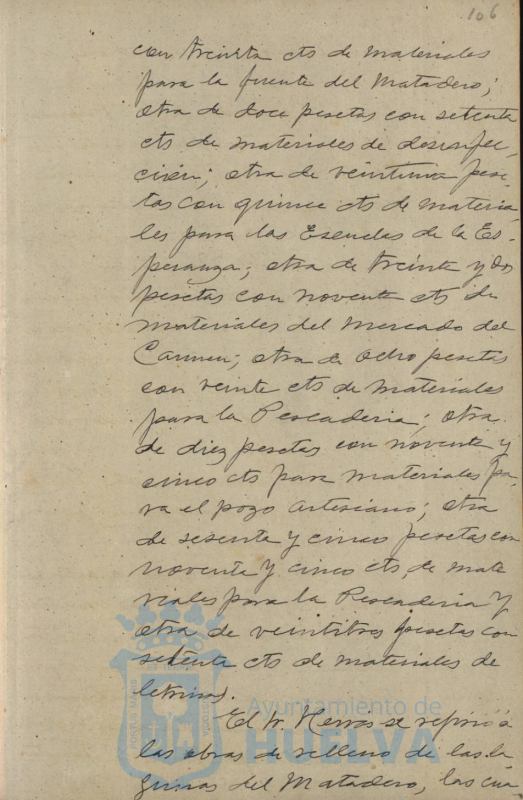 106
con treinta cts de materiales
para la fuente del Matadero;
otra de doce pesetas con setenta
cts de materiales de desinfec-
ción; otra de veintiuna pese-
tas con quince cts de materia-
les para las Escuelas de la Es-
peranza; otra de treinta y dos
pesetas con noventa cts de
materiales del Mercado del
Carmen; otra de ocho pesetas
con veinte cts de materiales
para la Pescaderia; otra
de diez pesetas con noventa y
cinco cts para materiales pa-
ra el pozo artesiano; otra
de sesenta y cinco pesetas con
noventa y cinco cts, de mate
riales para la Pescaderia y
otra de veintitres pesetas con
setenta cts de materiales de
letrinas.
El Sr. se refirió a
las obras de relleno de las la
gunas del Matadero, las cua
PORTUS MARIS
CUSTODIA
Ayuntamiento de
HUELVA